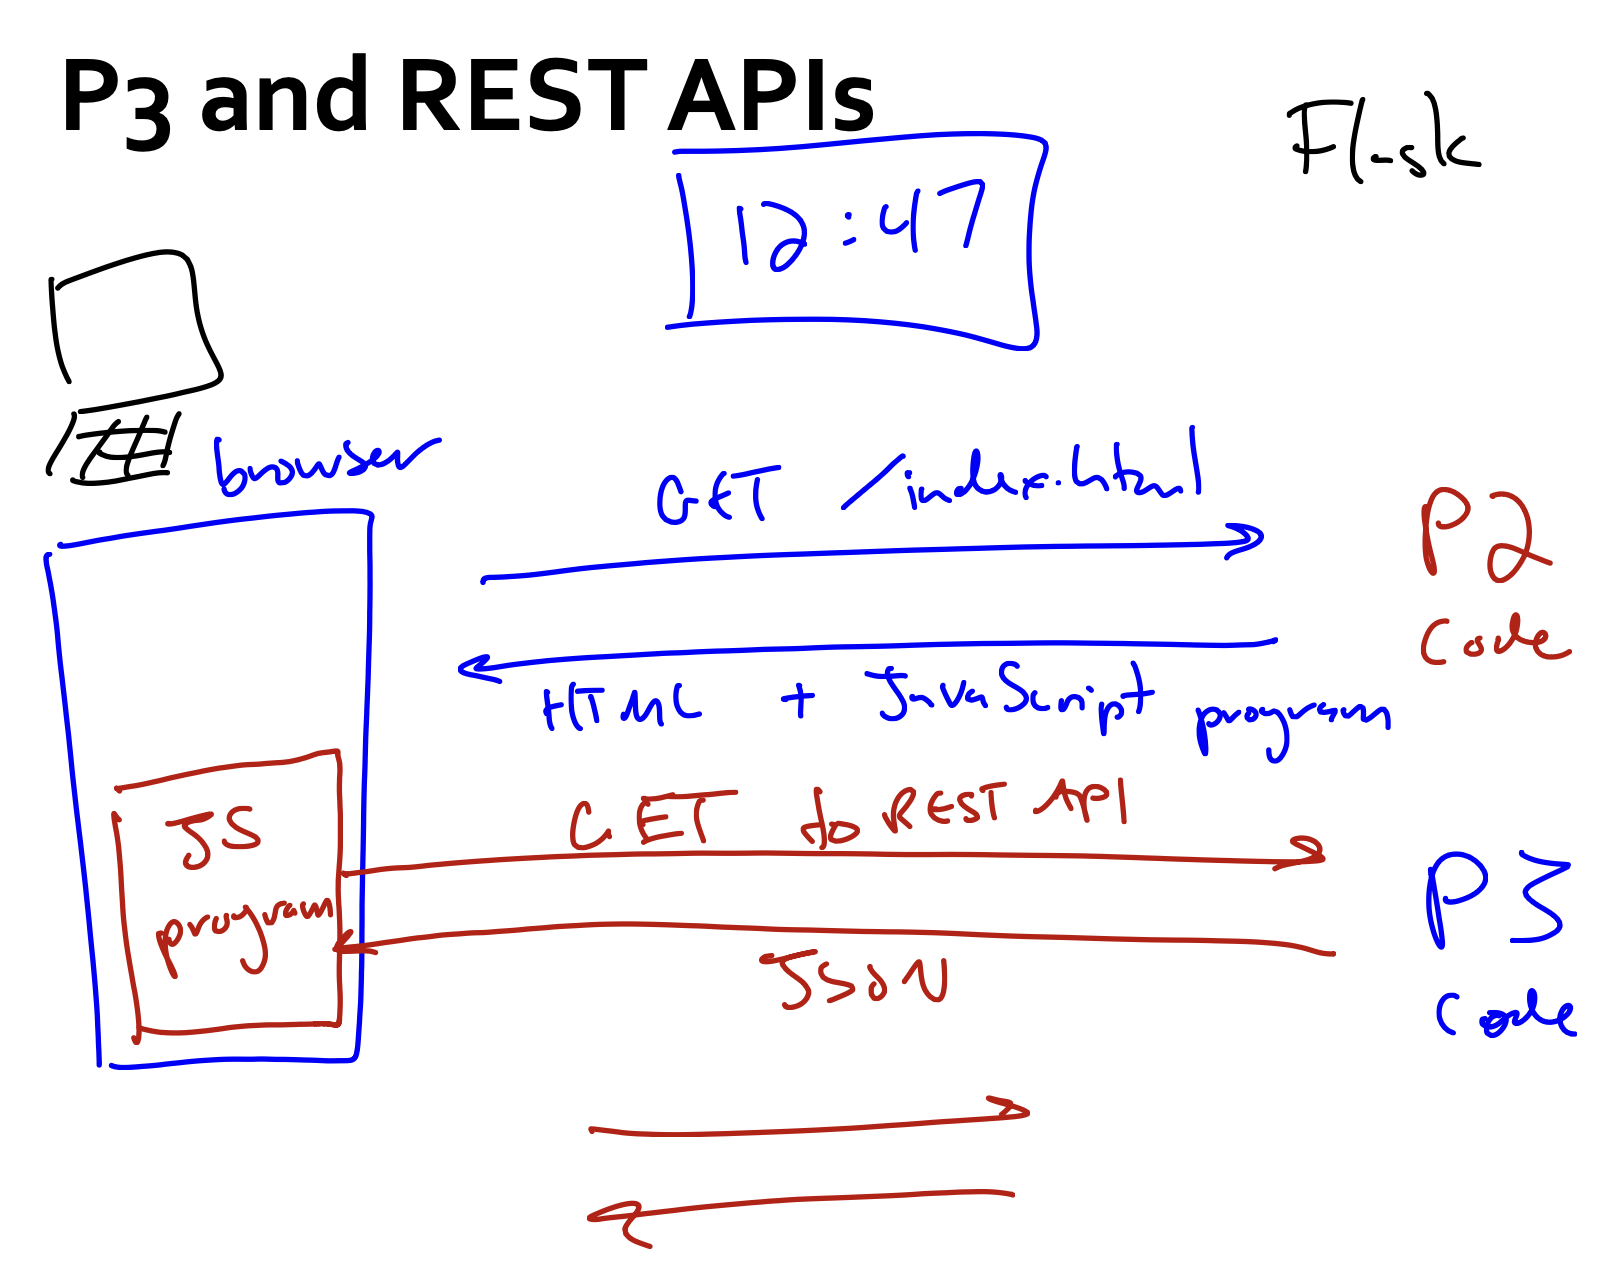 P3 and REST APIs
Flask
12:47
browser
GET /index.html
P2
code
HTML + JavaScript program
GET to REST API
JS
program
P3
code
JSON